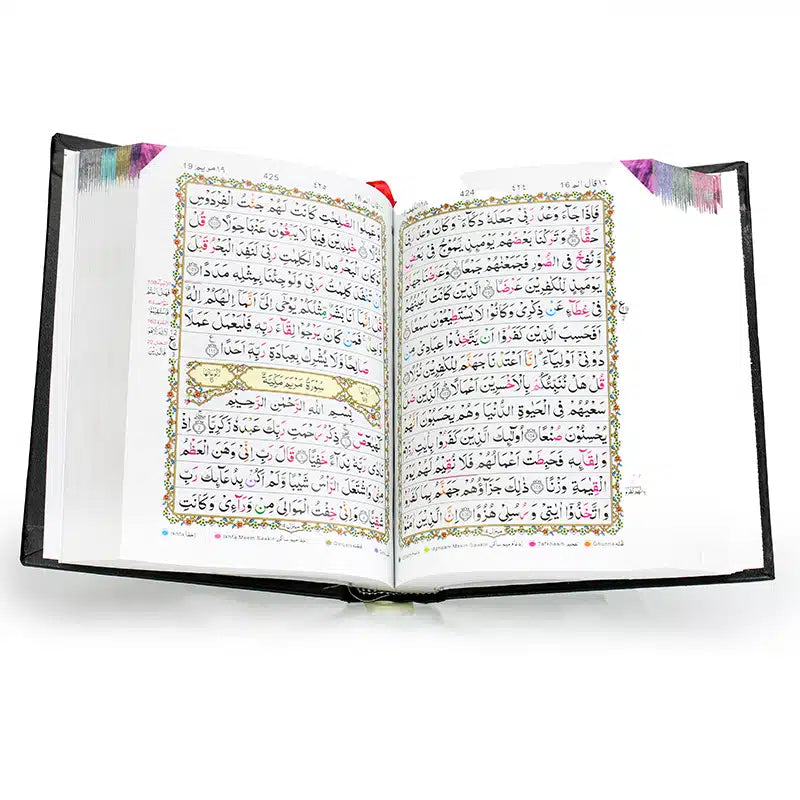 ١٦ قال الم 16 ٤٢٤ 424
فَاِذَا جَآءَ وَعْدُ رَبِّيْ جَعَلَهٗ دَكَّآءَ وَكَانَ وَعْدُ رَبِّيْ
حَقًّا وَتَرَكْنَا بَعْضَهُمْ يَوْمَئِذٍ يَّمُوْجُ فِيْ بَعْضٍ
وَّنُفِخَ فِي الصُّوْرِ فَجَمَعْنٰهُمْ جَمْعًا وَّعَرَضْنَا جَهَنَّمَ
يَوْمَئِذٍ لِّلْكٰفِرِيْنَ عَرْضًا الَّذِيْنَ كَانَتْ اَعْيُنُهُمْ
فِيْ غِطَآءٍ عَنْ ذِكْرِيْ وَكَانُوْا لَا يَسْتَطِيْعُوْنَ سَمْعًا
اَفَحَسِبَ الَّذِيْنَ كَفَرُوْٓا اَنْ يَّتَّخِذُوْا عِبَادِيْ مِنْ
دُوْنِيْٓ اَوْلِيَآءَ اِنَّآ اَعْتَدْنَا جَهَنَّمَ لِلْكٰفِرِيْنَ نُزُلًا
قُلْ هَلْ نُنَبِّئُكُمْ بِالْاَخْسَرِيْنَ اَعْمَالًا الَّذِيْنَ ضَلَّ
سَعْيُهُمْ فِي الْحَيٰوةِ الدُّنْيَا وَهُمْ يَحْسَبُوْنَ اَنَّهُمْ
يُحْسِنُوْنَ صُنْعًا اُولٰٓئِكَ الَّذِيْنَ كَفَرُوْا بِاٰيٰتِ رَبِّهِمْ
وَلِقَآئِهٖ فَحَبِطَتْ اَعْمَالُهُمْ فَلَا نُقِيْمُ لَهُمْ يَوْمَ
الْقِيٰمَةِ وَزْنًا ذٰلِكَ جَزَآؤُهُمْ جَهَنَّمُ بِمَا كَفَرُوْا
وَاتَّخَذُوْٓا اٰيٰتِيْ وَرُسُلِيْ هُزُوًا اِنَّ الَّذِيْنَ اٰمَنُوْا
Idgham Meem Saakin ادغام میم ساکن Tafkheem تفخیم Ghunna غنه
١٩ مريم 19 ٤٢٥ 425
وَعَمِلُوا الصّٰلِحٰتِ كَانَتْ لَهُمْ جَنّٰتُ الْفِرْدَوْسِ
نُزُلًا خٰلِدِيْنَ فِيْهَا لَا يَبْغُوْنَ عَنْهَا حِوَلًا قُلْ
لَّوْ كَانَ الْبَحْرُ مِدَادًا لِّكَلِمٰتِ رَبِّيْ لَنَفِدَ الْبَحْرُ قَبْلَ
اَنْ تَنْفَدَ كَلِمٰتُ رَبِّيْ وَلَوْ جِئْنَا بِمِثْلِهٖ مَدَدًا
قُلْ اِنَّمَآ اَنَا بَشَرٌ مِّثْلُكُمْ يُوْحٰٓى اِلَيَّ اَنَّمَآ اِلٰهُكُمْ اِلٰهٌ
وَّاحِدٌ فَمَنْ كَانَ يَرْجُوْا لِقَآءَ رَبِّهٖ فَلْيَعْمَلْ عَمَلًا
صَالِحًا وَّلَا يُشْرِكْ بِعِبَادَةِ رَبِّهٖٓ اَحَدًا
سُوْرَةُ مَرْيَمَ مَكِّيَّةٌ
بِسْمِ اللّٰهِ الرَّحْمٰنِ الرَّحِيْمِ
كٓهٰيٰعٓصٓ ذِكْرُ رَحْمَتِ رَبِّكَ عَبْدَهٗ زَكَرِيَّا اِذْ
نَادٰى رَبَّهٗ نِدَآءً خَفِيًّا قَالَ رَبِّ اِنِّيْ وَهَنَ الْعَظْمُ
مِنِّيْ وَاشْتَعَلَ الرَّاْسُ شَيْبًا وَّلَمْ اَكُنْۢ بِدُعَآئِكَ رَبِّ
شَقِيًّا وَاِنِّيْ خِفْتُ الْمَوَالِيَ مِنْ وَّرَآءِيْ وَكَانَتِ
Ikhfa اخفا Ikhfa Meem Saakin اخفا میم ساکن Qalqala قلقله